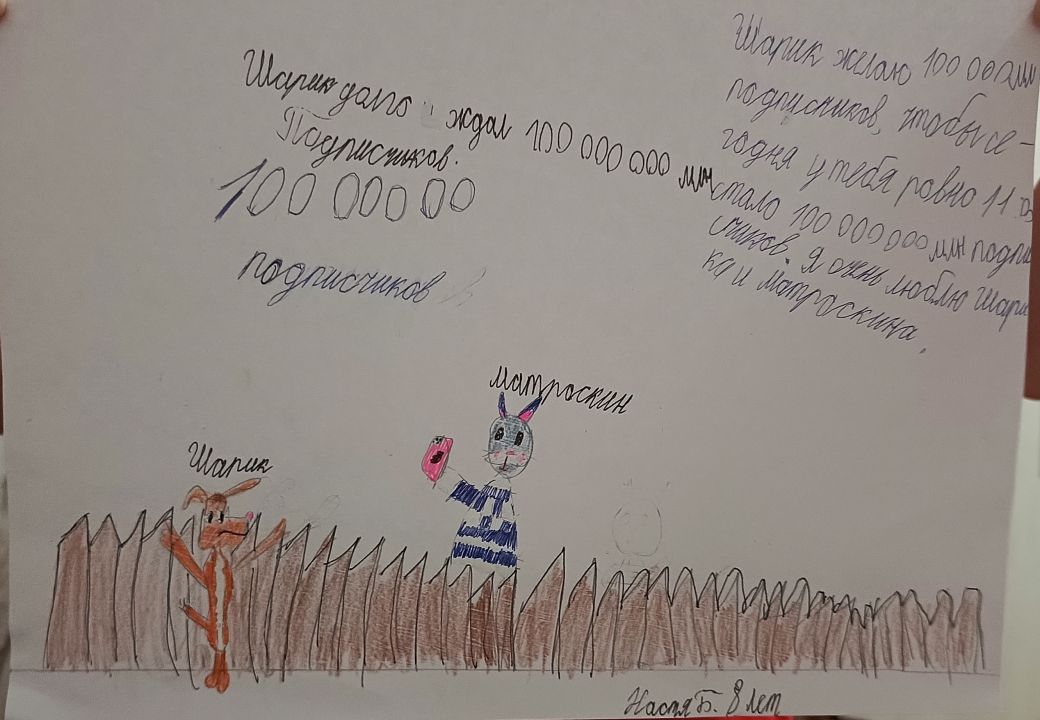 Шарик долго ждал 100 000 000 млн
Подписчиков.
100 000 00
подписчиков
Шарик желаю 100 000 млн
подписчиков, чтобы се-
годня у тебя ровно 11
стало 100 000 000 млн подпи
счиков. Я очень люблю Шари
ка и Матроскина.
Матроскин
Шарик
Настя Б. 8 лет